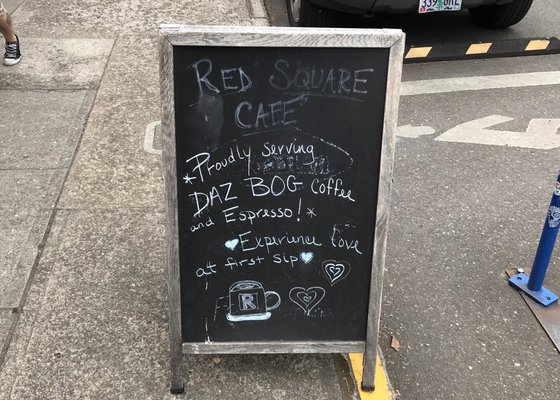 RED SQUARE
CAFE
*Proudly serving
DAZ BOG Coffee
and Espresso! *
Experience Love
at first sip
R